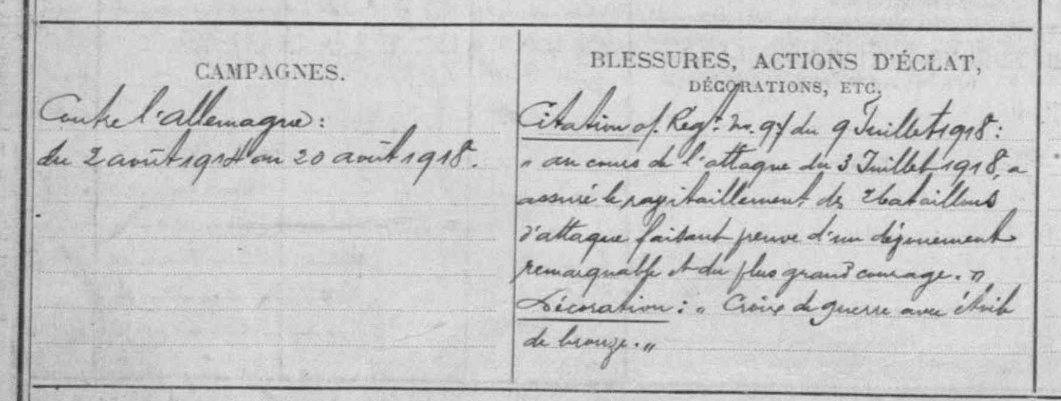 CAMPAGNES.
Contre l'allemagne :
du 2 août 1914 au 20 août 1918.
BLESSURES, ACTIONS D'ÉCLAT,
DÉCORATIONS, ETC.
Citation of. Regt. No. 97 du 9 Juillet 1918 :
" au cours de l'attaque du 3 Juillet 1918, a
assuré le ravitaillement des 2 bataillons
d'attaque faisant preuve d'un dévouement
remarquable et du plus grand courage. "
Décoration : " Croix de guerre avec étoile
de bronze. "